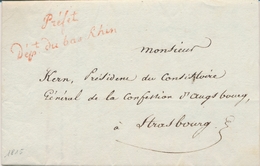 Préfet
Dépt du bas Rhin
Monsieur
Kern, Président du Consistoire
Général de la Confession d'Augsbourg,
à Strasbourg
1815